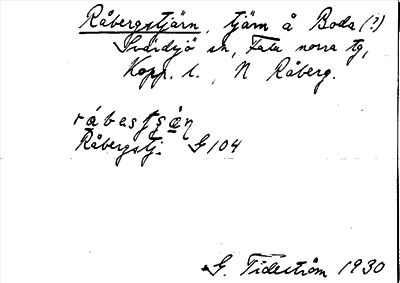 Råbergstjärn, tjärn å Boda (?)
Svärdsjö sn, Falu norra tg,
Kopp. l., N Råberg.
Råbergstj. G 104
G. Tideström 1930